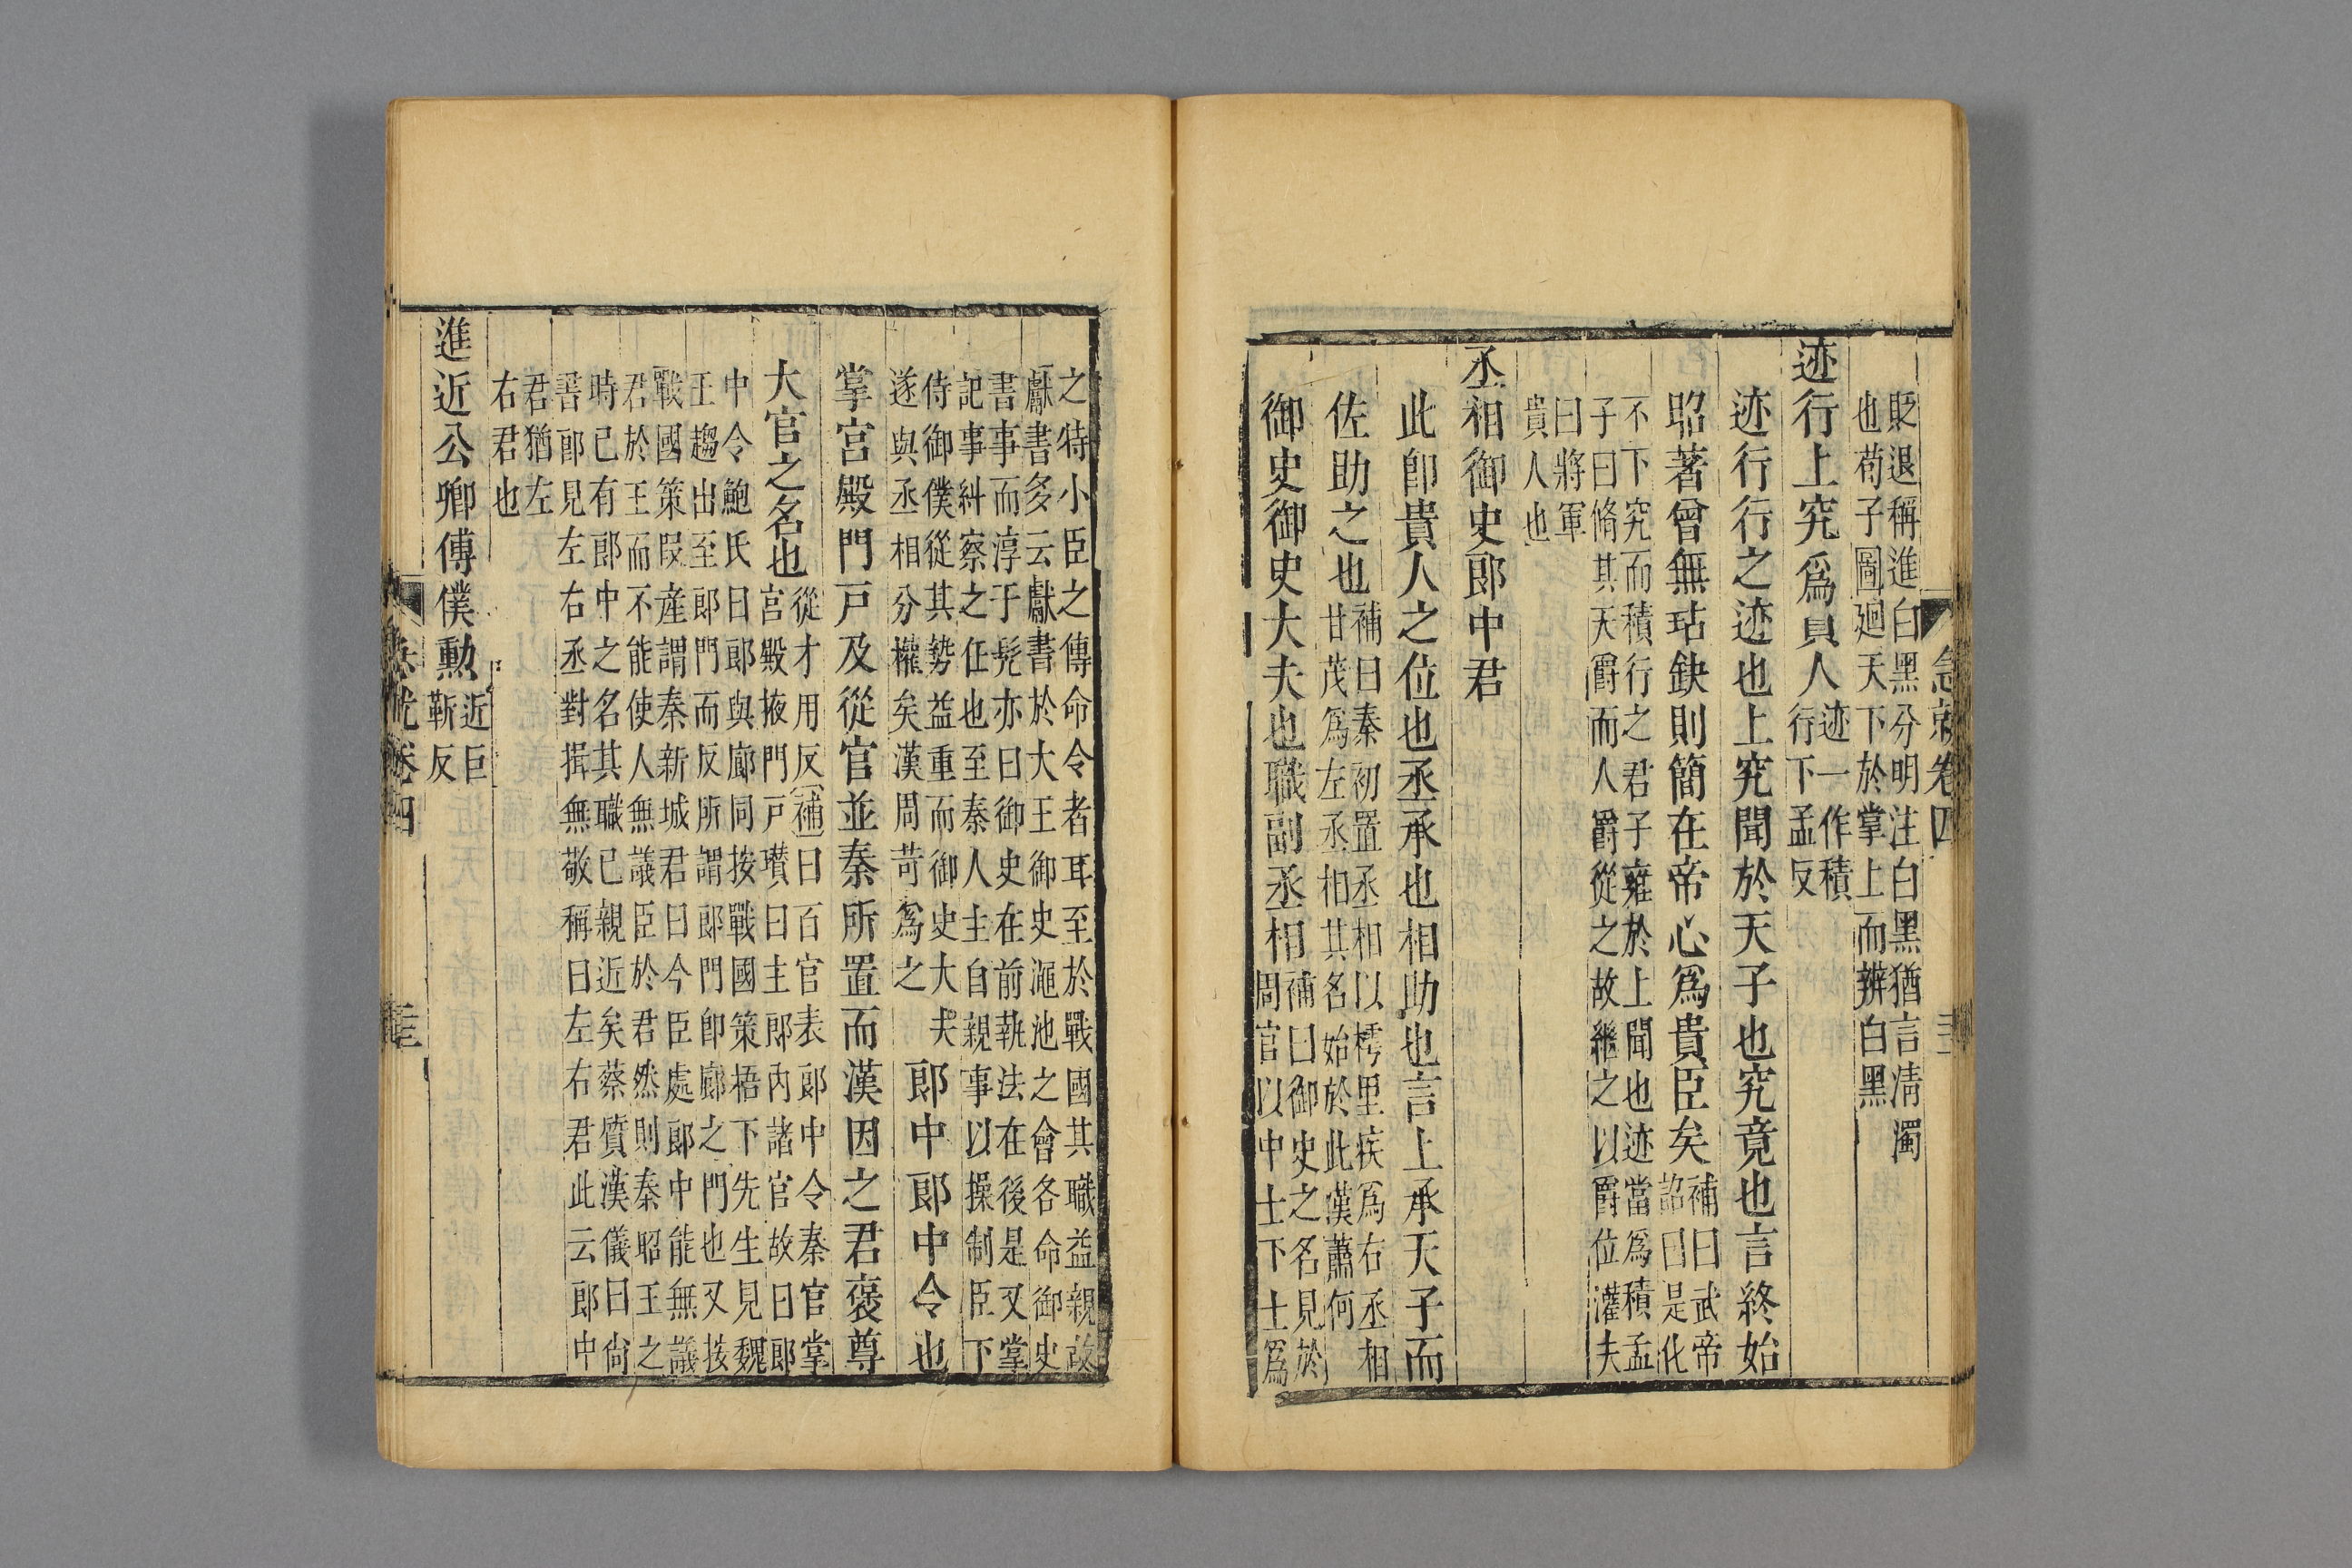 急就卷四
貶退稱進白黑分明注白黑猶言淸濁
也荀子圖廻天下於掌上而辨白黑
迹行上究爲貴人迹一作積
行下孟反
迹行行之迹也上究聞於天子也究竟也言終始
昭著曾無玷鈌則簡在帝心爲貴臣矣補曰武帝
詔曰是化
不下究而積行之君子雍於上聞也迹當爲積孟
子曰脩其天爵而人爵從之故繼之以爵位灌夫
曰將軍
貴人也
丞相御史郎中君
此卽貴人之位也丞承也相助也言上承天子而
佐助之也補曰秦初置丞相以樗里疾爲右丞相
甘茂爲左丞相其名始於此漢蕭何
御史御史大夫也職副丞相補曰御史之名見於
周官以中士下士爲
之特小臣之傳命令者耳至於戰國其職益親故
獻書多云獻書於大王御史澠池之會各命御史
書事而淳于髡亦曰御史在前執法在後是又掌
記事糾察之任也至秦人主自親事以操制臣下
侍御僕從其勢益重而御史大夫
遂與丞相分權矣漢周苛爲之
郎中郎中令也
掌宮殿門戸及從官並秦所置而漢因之君褒尊
大官之名也從才用反補曰百官表郎中令秦官掌
宮殿掖門戸瓚曰主郎内諸官故曰郎
中令鮑氏曰郎與廊同按戰國策梧下先生見魏
王趨出至郎門而反所謂郎門卽廊之門也又按
戰國策叚産謂秦新城君曰今臣處郎中能無議
君於王而不能使人無議臣於君然則秦昭王之
時已有郎中之名其職已親近矣蔡質漢儀曰尙
書郎見左右丞對揖無敬稱曰左右君此云郎中
君猶左
右君也
進近公卿傅僕勳近巨
靳反
急就卷四